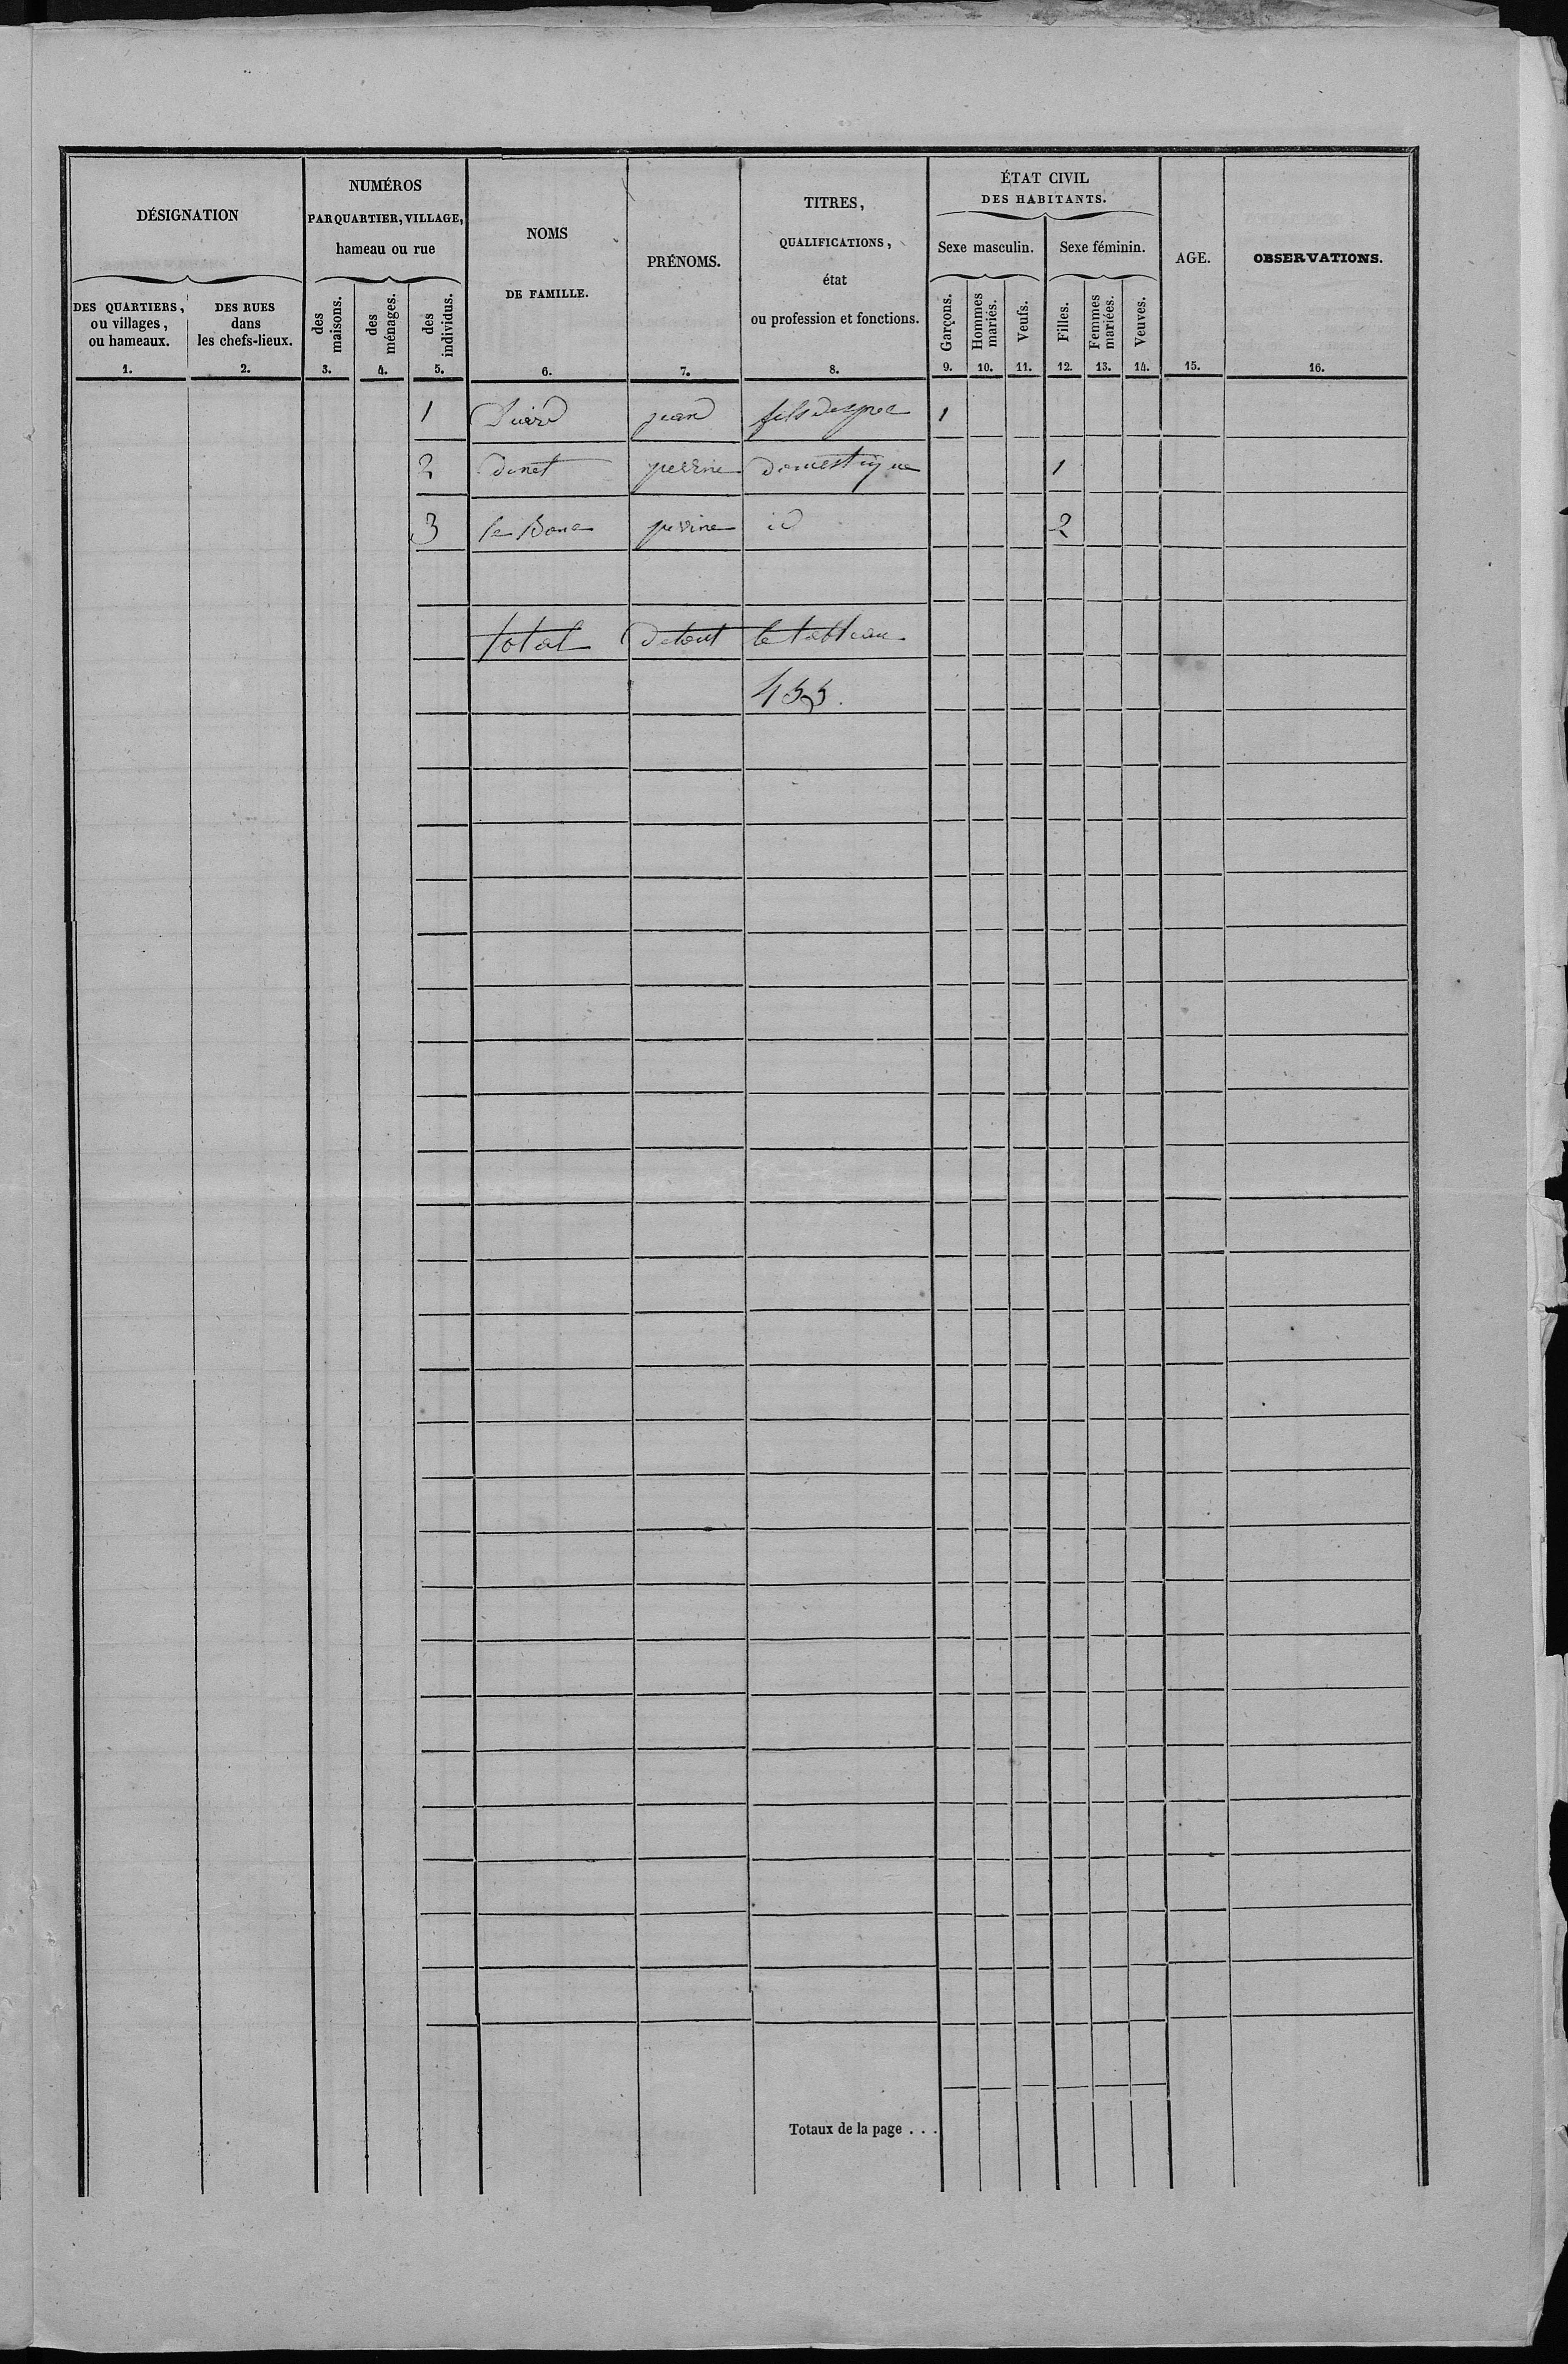 DÉSIGNATION
DES QUARTIERS,
ou villages,
ou hameaux.
1.
DES RUES
dans
les chefs-lieux.
2.
NUMÉROS
PAR QUARTIER, VILLAGE,
hameau ou rue
des
maisons.
3.
des
ménages.
4.
des
individus.
5.
NOMS
DE FAMILLE.
6.
PRÉNOMS.
7.
TITRES,
QUALIFICATIONS,
état
ou profession et fonctions.
8.
ÉTAT CIVIL
DES HABITANTS.
Sexe masculin.
Garçons.
9.
Hommes
mariés.
10.
Veufs.
11.
Sexe féminin.
Filles.
12.
Femmes
mariées.
13.
Veuves.
14.
AGE.
15.
OBSERVATIONS.
16.
1 jean fils 1
2 danet perrine domestique 1
3 le perine id 2
total detout le tableau
455.
Totaux de la page . . .